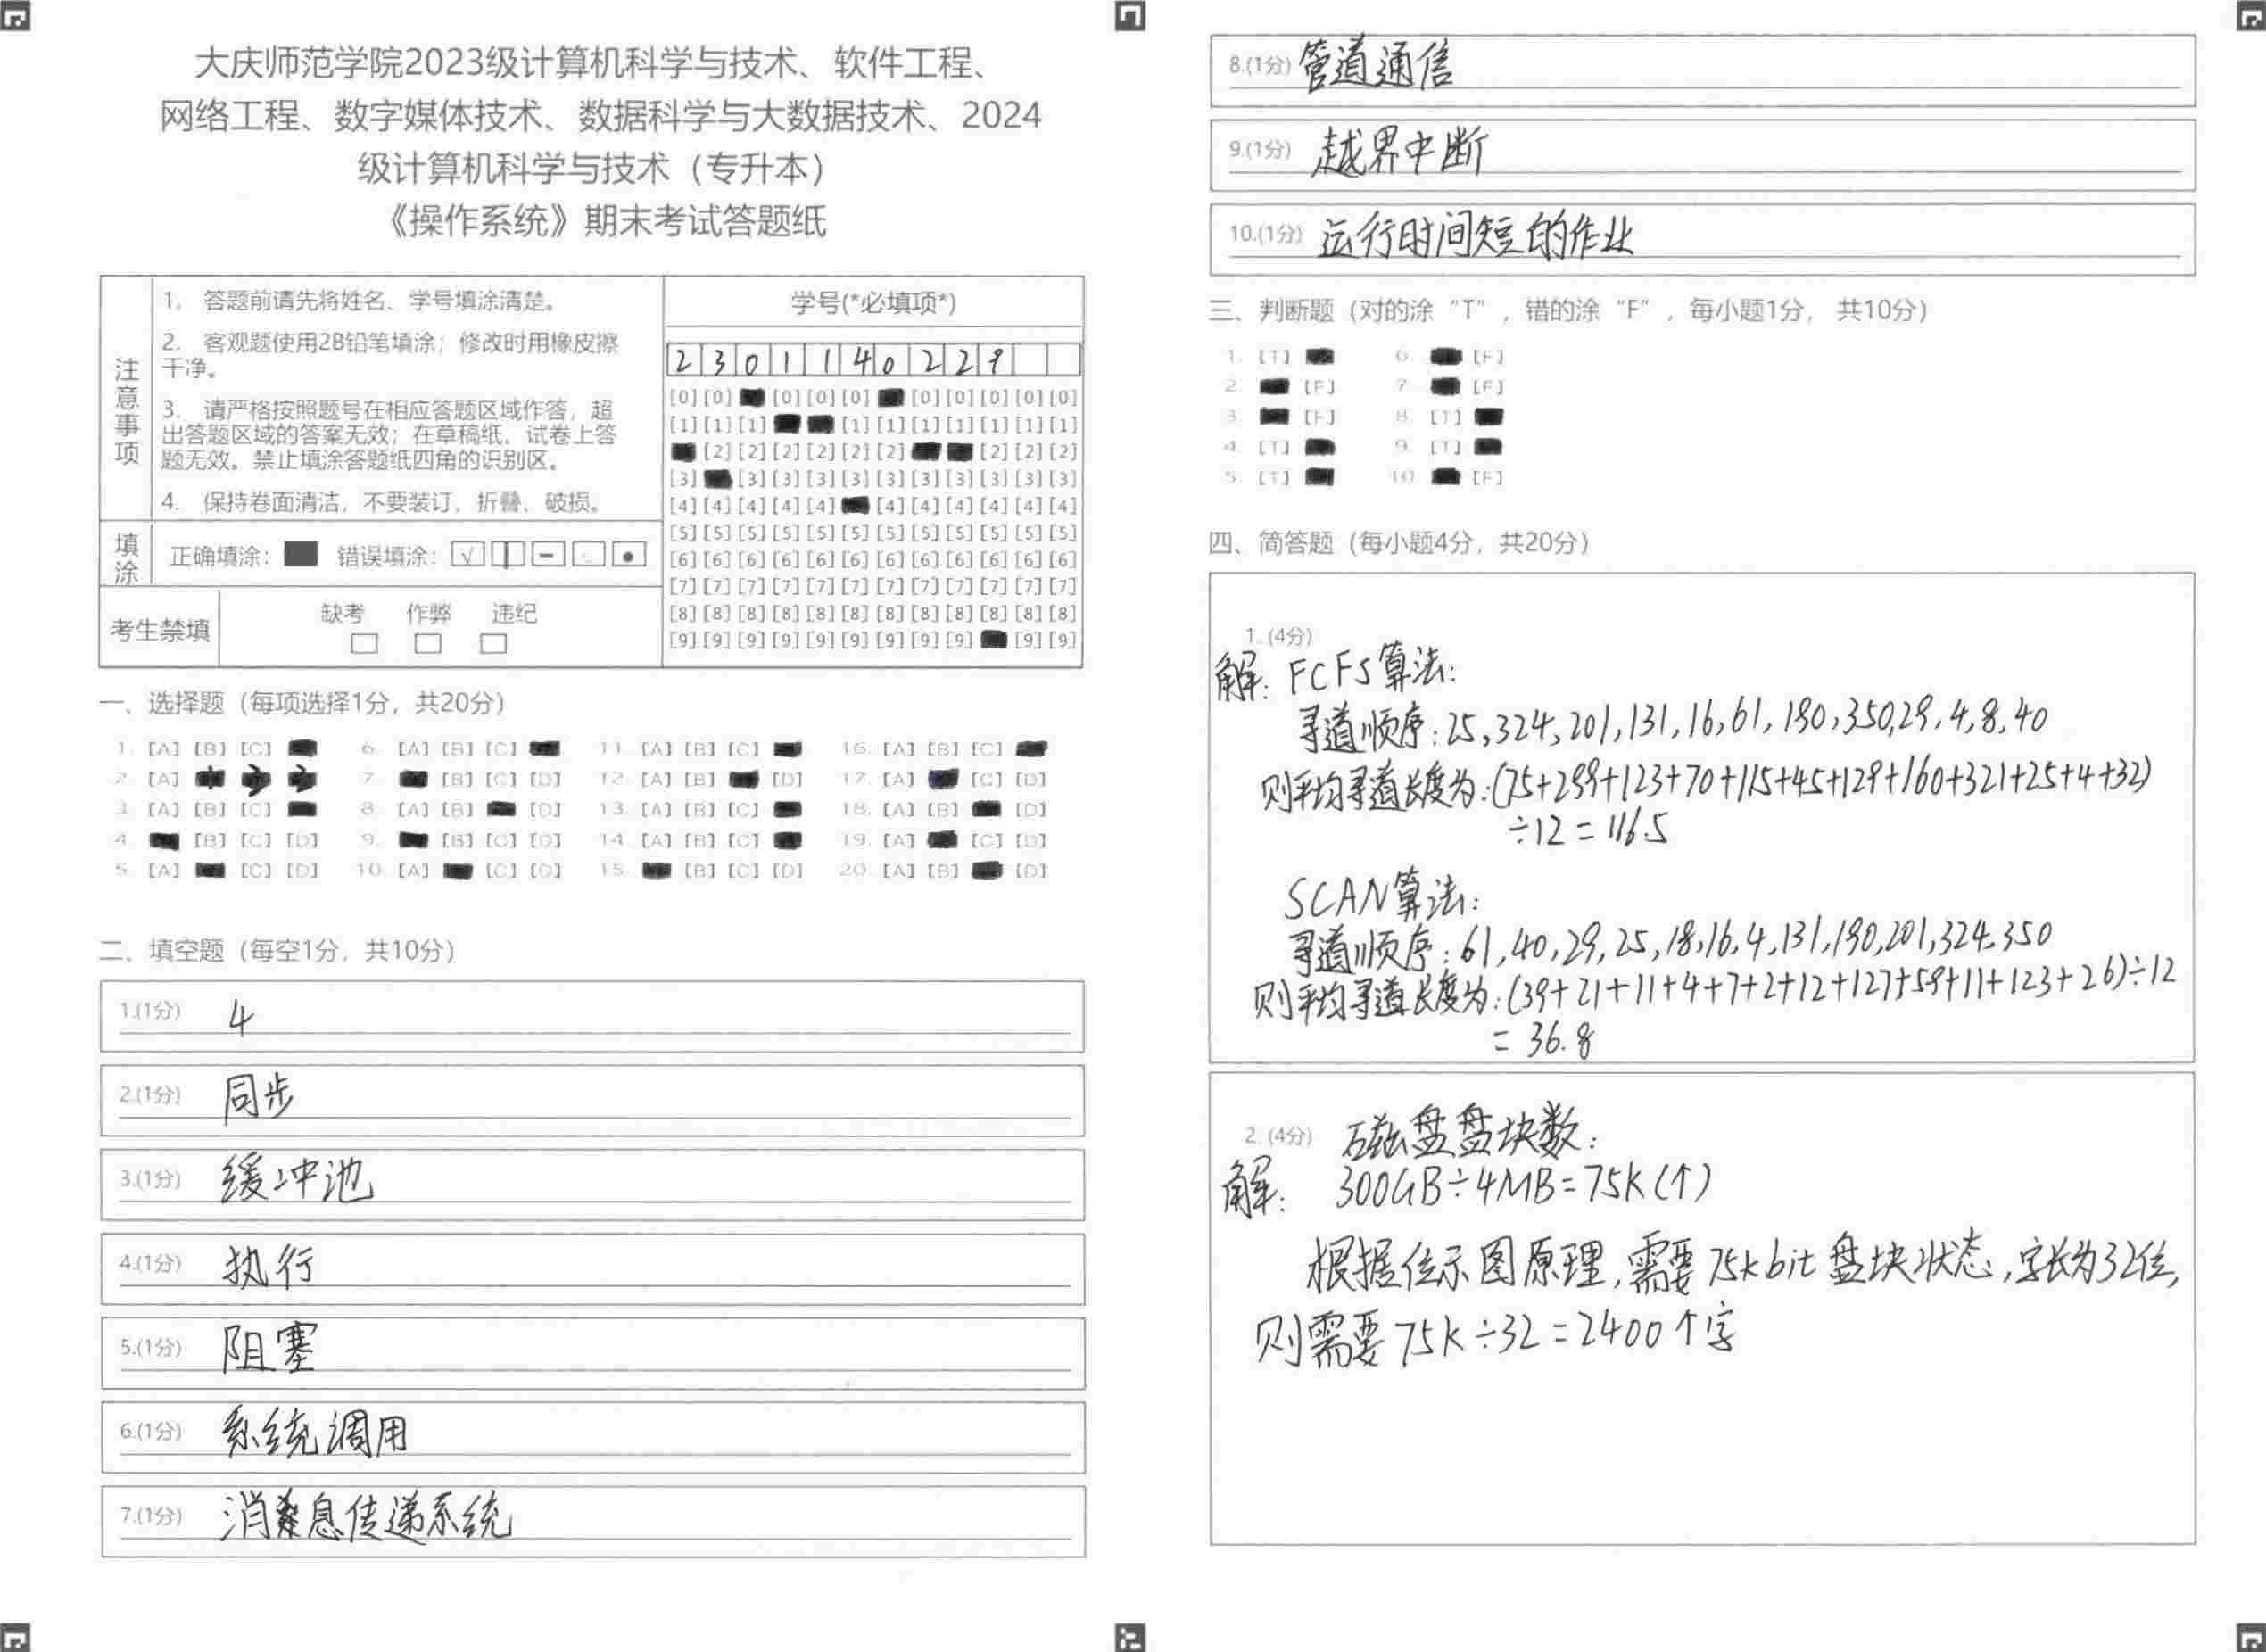 大庆师范学院2023级计算机科学与技术、软件工程、
网络工程、数字媒体技术、数据科学与大数据技术、2024
级计算机科学与技术（专升本）
《操作系统》期末考试答题纸
注意事项
1. 答题前请先将姓名、学号填涂清楚。
2. 客观题使用2B铅笔填涂；修改时用橡皮擦
干净。
3. 请严格按照题号在相应答题区域作答，超
出答题区域的答案无效；在草稿纸、试卷上答
题无效。禁止填涂答题纸四角的识别区。
4. 保持卷面清洁，不要装订、折叠、破损。
填涂
正确填涂： 错误填涂：
考生禁填
缺考 作弊 违纪
学号(*必填项*)
2 3 0 1 1 4 0 2 2 9
[0] [0] [0] [0] [0] [0] [0] [0] [0] [0]
[1] [1] [1] [1] [1] [1] [1] [1] [1] [1]
[2] [2] [2] [2] [2] [2] [2] [2] [2]
[3] [3] [3] [3] [3] [3] [3] [3] [3] [3] [3]
[4] [4] [4] [4] [4] [4] [4] [4] [4] [4] [4]
[5] [5] [5] [5] [5] [5] [5] [5] [5] [5] [5] [5]
[6] [6] [6] [6] [6] [6] [6] [6] [6] [6] [6] [6]
[7] [7] [7] [7] [7] [7] [7] [7] [7] [7] [7] [7]
[8] [8] [8] [8] [8] [8] [8] [8] [8] [8] [8] [8]
[9] [9] [9] [9] [9] [9] [9] [9] [9] [9] [9]
一、选择题（每项选择1分，共20分）
1. [A] [B] [C] 6. [A] [B] [C] 11. [A] [B] [C] 16. [A] [B] [C]
2. [A] 7. [B] [C] [D] 12. [A] [B] [D] 17. [A] [C] [D]
3. [A] [B] [C] 8. [A] [B] [D] 13. [A] [B] [C] 18. [A] [B] [D]
4. [B] [C] [D] 9. [B] [C] [D] 14. [A] [B] [C] 19. [A] [C] [D]
5. [A] [C] [D] 10. [A] [C] [D] 15. [B] [C] [D] 20. [A] [B] [D]
二、填空题（每空1分，共10分）
1.(1分) 4
2.(1分) 同步
3.(1分) 缓冲池
4.(1分) 执行
5.(1分) 阻塞
6.(1分) 系统调用
7.(1分) 消息传递系统
8.(1分) 管道通信
9.(1分) 越界中断
10.(1分) 运行时间短的作业
三、判断题（对的涂“T”，错的涂“F”，每小题1分， 共10分）
1. [T] 6. [F]
2. [F] 7. [F]
3. [F] 8. [T]
4. [T] 9. [T]
5. [T] 10. [F]
四、简答题（每小题4分，共20分）
1. (4分)
解: FCFS算法:
寻道顺序: 25,324,201,131,16,61,190,350,29,4,8,40
则平均寻道长度为:(75+299+123+70+115+45+129+160+321+25+4+32)
÷12=116.5
SCAN算法:
寻道顺序:61,40,29,25,18,16,4,131,190,201,324,350
则平均寻道长度为:(39+21+11+4+7+2+12+127+59+11+123+26)÷12
=36.8
2. (4分) 磁盘盘块数:
解: 300GB÷4MB=75K(个)
根据位示图原理,需要75kbit盘块状态,字长为32位,
则需要75K÷32=2400个字